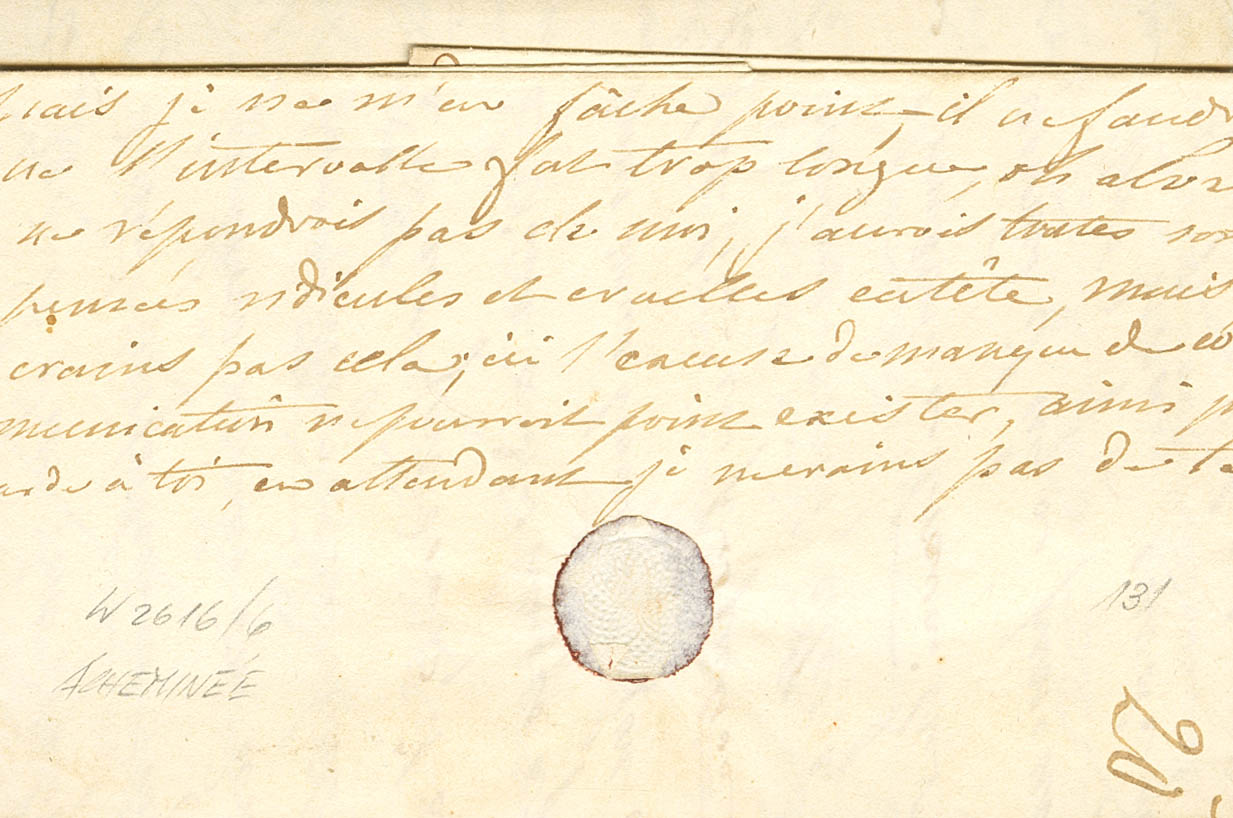 mais je ne m'en fâche point, il ne faudr
ne l'intervalle fut trop longue, oh alor
ne répondrois pas de moi, j'aurois toutes sor
pensées ridicules et cruelles en tête, mais
crains pas cela, ici l'excuse de manque de co
munication ne pourroit point exister, ainsi p
arde à toi, en attendant je ne crains pas de te
W 2616/6
131
ACHEMINÉE